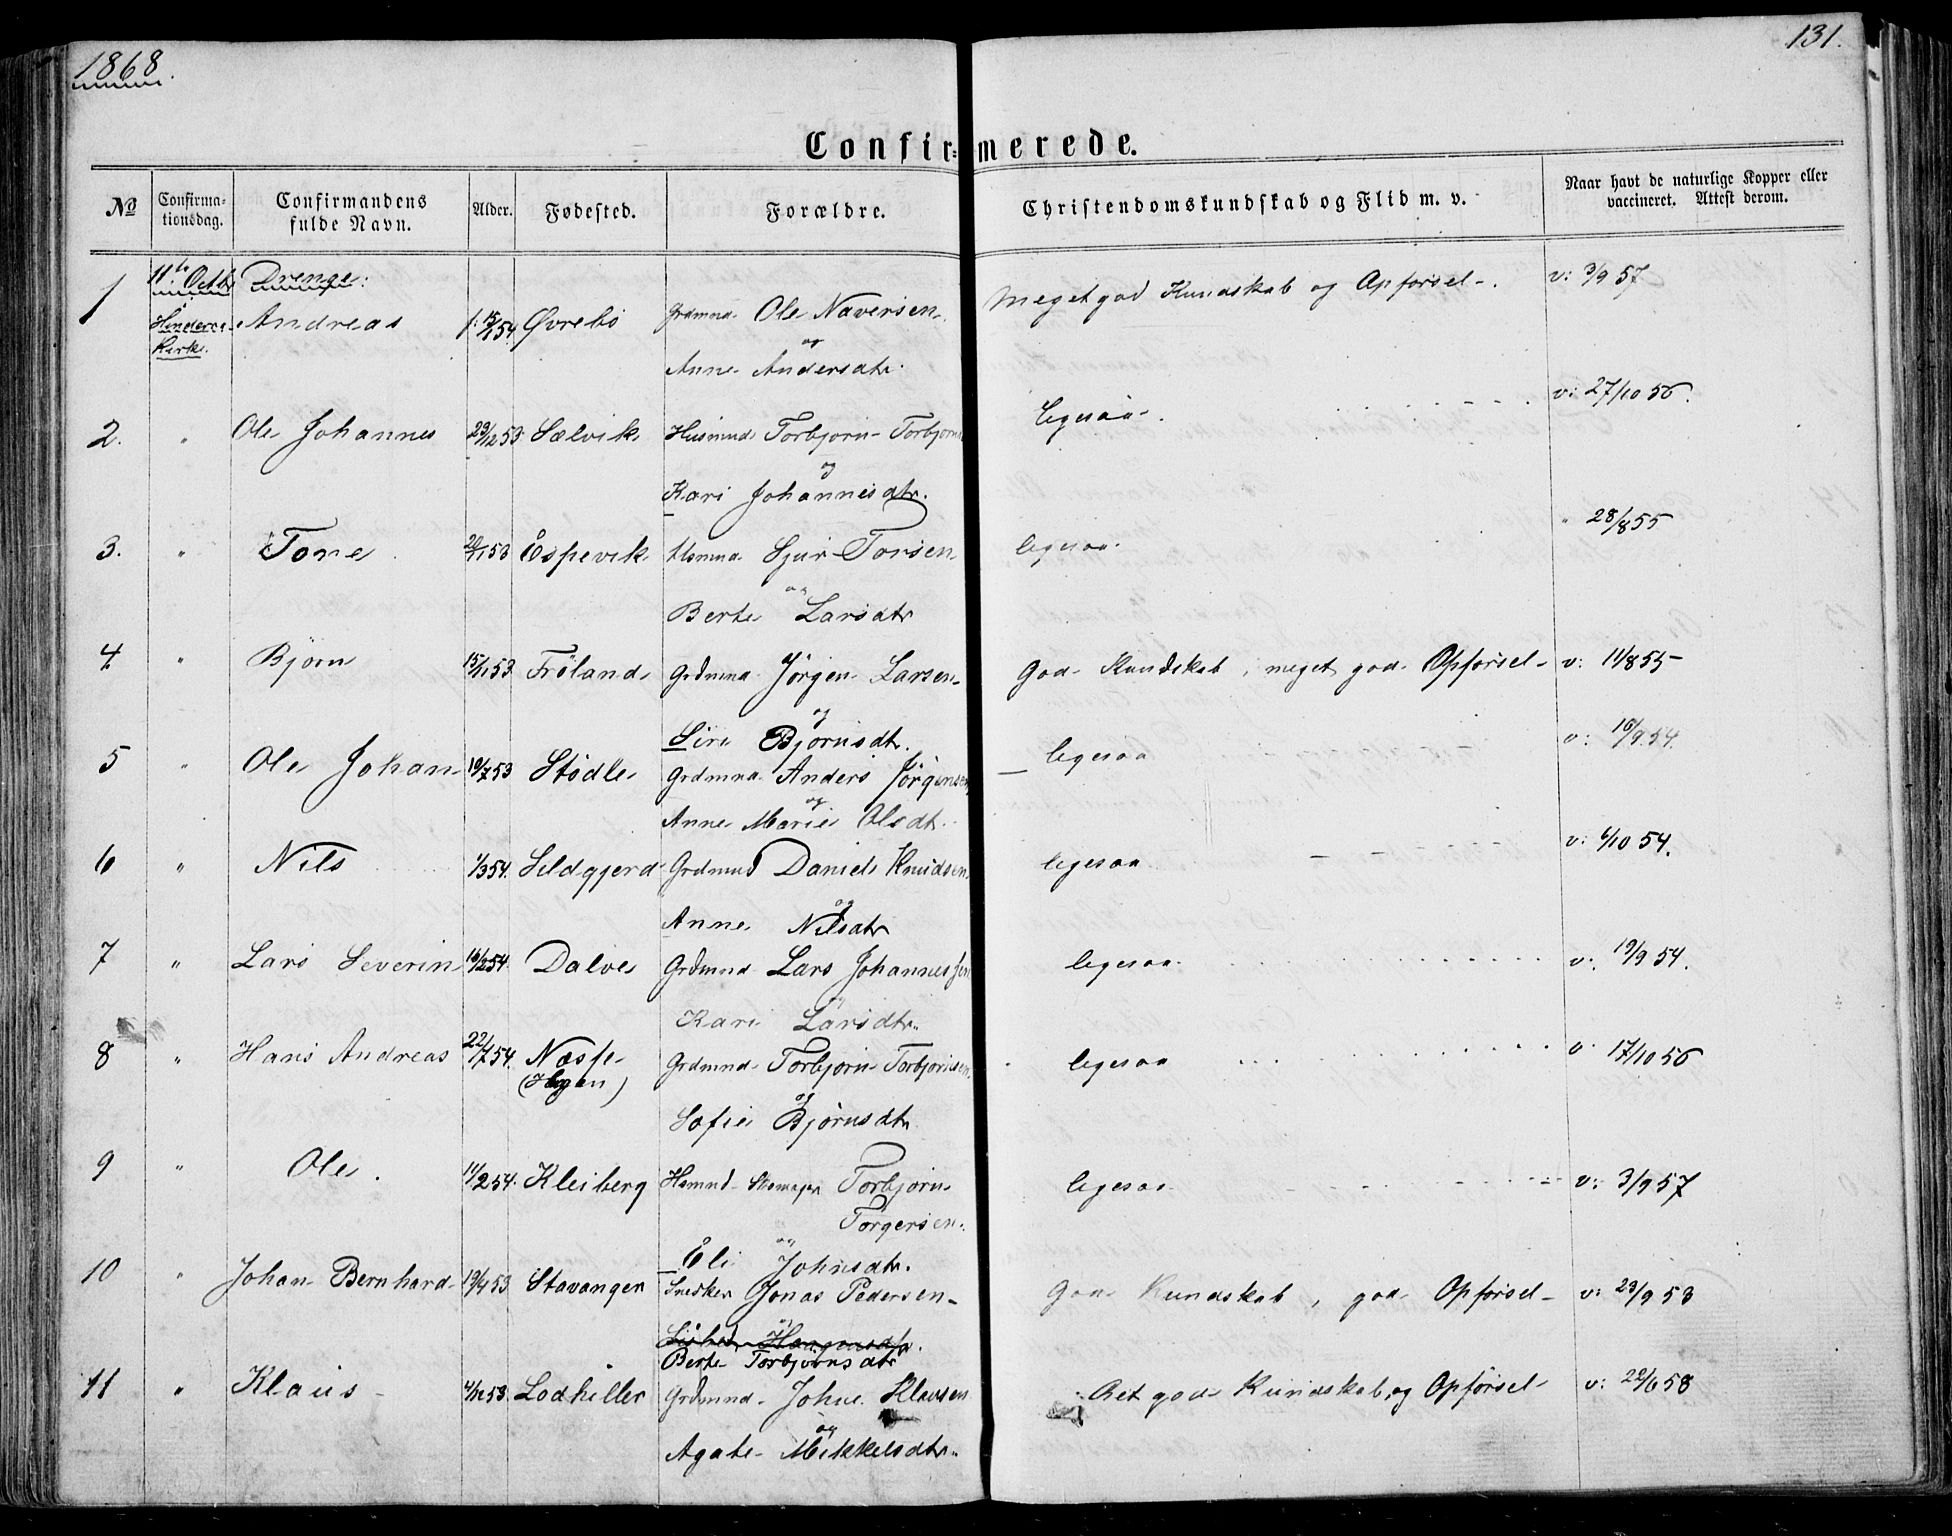 1868.
131.
Confir=merede.
No
Confirma-
tionsdag.
Confirmandens
fulde Navn.
Alder.
Fødested.
Forældre.
Christendomskundskab og Flid m. v.
Naar havt de naturlige Kopper eller
vaccineret. Attest derom.
11te Octbr Drenge:
1 Andreas Øvrebö Grdmnd. Ole Naversen Meget god Kundskab og Opførsel. v: 3/9 57
Kirke.
og
Anne Andersdtr.
2. " Ole Johannes 23/12 53 Sælvik Husmnd Torbjørn Torbjørns ligesaa. v: 27/10 56.
og
Kari Johannesdtr.
3. " Tore 53 Espevik Husmnd. Sjur Torsen ligesaa. " 28/8 55
og
Berte Larsdtr
4. " Bjørn 15/11 53 Fröland Grdmnd. Jörgen Larsen God Kundskab, meget god Opførsel v: 11/8 55
og
Siri Bjørnsdtr.
5 " Ole Johan 19/7 53 Stödle Grdmnd. Anders Jörgensen ligesaa v: 16/9 54.
og
Anne Marie Olsdt.
6 " Nils 1/3 54. Seldgjerd Grdmnd Daniel Knudsen ligesaa v: 6/10 54.
og
Anne Nilsdtr
7 " Lars Severin 16/2 54 Dalve Grdmnd. Lars Johannessen ligesaa. v: 19/9 54.
og
Kari Larsdtr.
8 " Hans Andreas 22/7 54. Næsse Grdmnd. Torbjørn Torbjørnsen ligesaa v. 17/10 56
og
Sofie Bjørnsdtr
9 " Ole. 11/2 54. Kleiberg Husmnd Skomager Torbjørn ligesaa v: 3/9 57
Torgersen.
og
Eli Johnsdtr.
10 " Johan Bernhard 19/4 53 Stavanger Snedker Jonas Pedersen God Kundskab, god Opførsel v: 23/9 53
og
Berte Torbjørnsdtr
11 " Klaus 4/12 53. Lodheller Grdmnd. Johne Klausen Ret god Kundskab og Opførsel v: 22/6 58
og
Agate Mikkelsdtr.